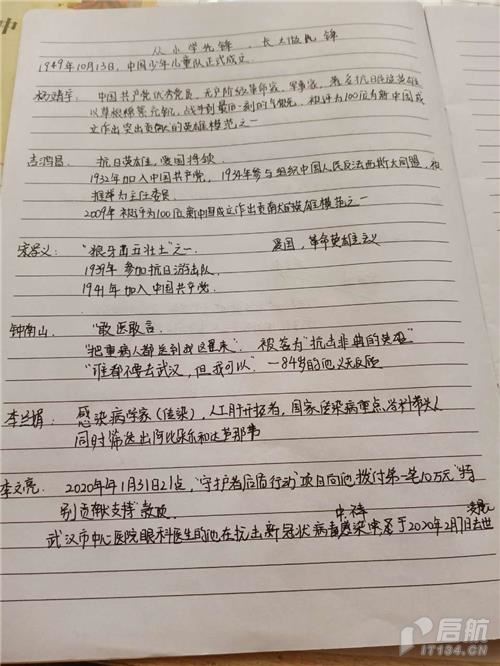 中
从小学先锋,长大做先锋
1949年10月13日,中国少年儿童队正式成立。
杨靖宇: 中国共产党优秀党员,无产阶级革命家,军事家,著名抗日民族英雄
以草根棉絮充饥,战斗到最后一刻的气概,被评为100位为新中国成
立作出突出贡献的英雄模范之一
吉鸿昌: 抗日英雄,爱国将领
1932年加入中国共产党,1934年参与组织中国人民反法西斯大同盟,被
推举为主任委员
2009年被评为100位新中国成立作出贡献的英雄模范之一
宋学义: "狼牙山五壮士"之一 爱国,革命英雄主义
1939年参加抗日游击队
1941年加入中国共产党
钟南山: "敢医敢言
"把重病人都送到我这里来" 被答为"抗击非典的英雄"
"谁都不要去武汉,但我可以"—84岁的他义无反顾
李兰娟: 感染病学家(传染),人工肝开拓者,国家传染病重点学科带头人
同时筛选出阿比朵尔和达芦那韦
李文亮: 2020年1月31日21点,"守护者后盾行动"项目向他拨付第一笔10万元"特
别贡献支持"款项
武汉市中心医院眼科医生的他在抗击新冠状病毒感染中,于2020年2月7日去世
启航
IT134.CN